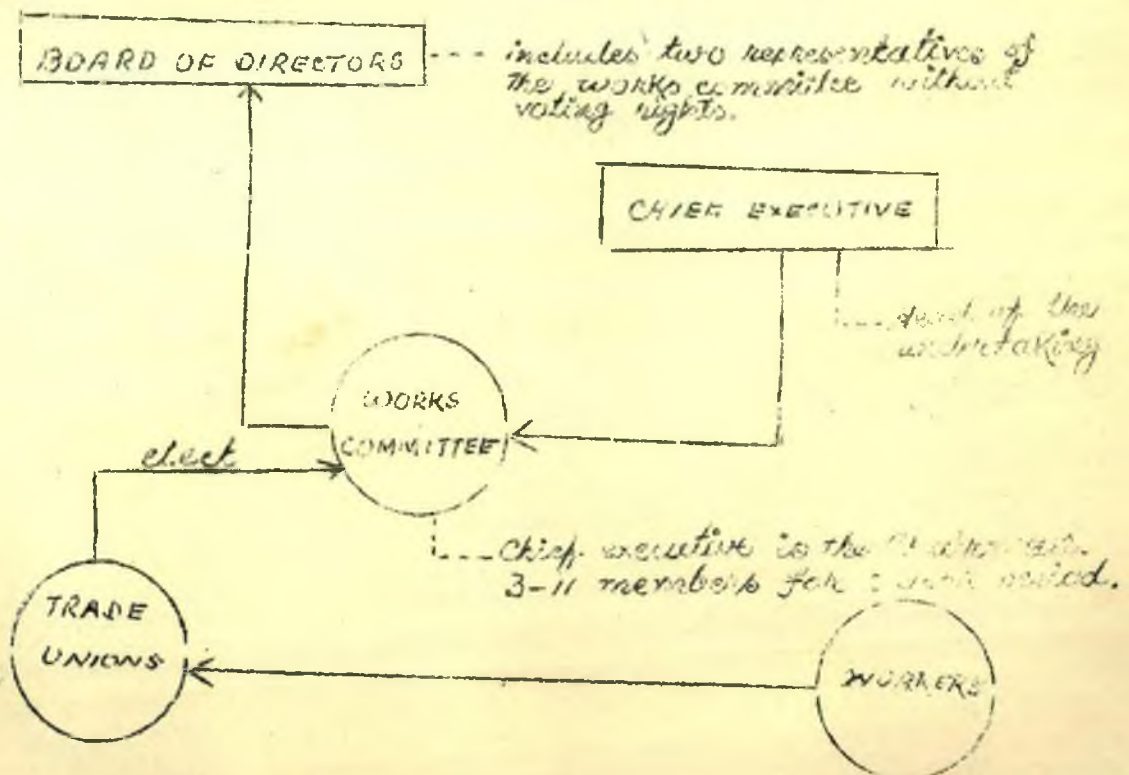 BOARD OF DIRECTORS
includes two representatives of
the works committee without
voting rights.
CHIEF EXECUTIVE
head of the
undertaking
WORKS
COMMITTEE
elect
Chief executive is the
3-11 members for period.
TRADE
UNIONS
WORKERS